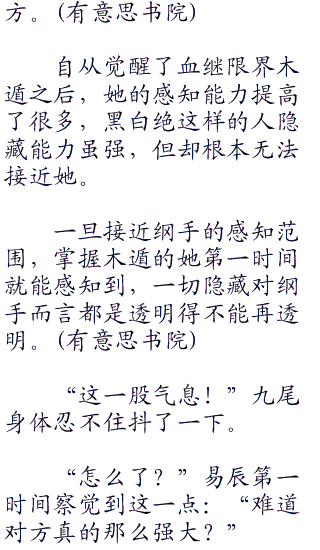 方。(有意思书院)
自从觉醒了血继限界木
遁之后，她的感知能力提高
了很多，黑白绝这样的人隐
藏能力虽强，但却根本无法
接近她。
一旦接近纲手的感知范
围，掌握木遁的她第一时间
就能感知到，一切隐藏对纲
手而言都是透明得不能再透
明。(有意思书院)
“这一股气息！”九尾
身体忍不住抖了一下。
“怎么了？”易辰第一
时间察觉到这一点：“难道
对方真的那么强大？”